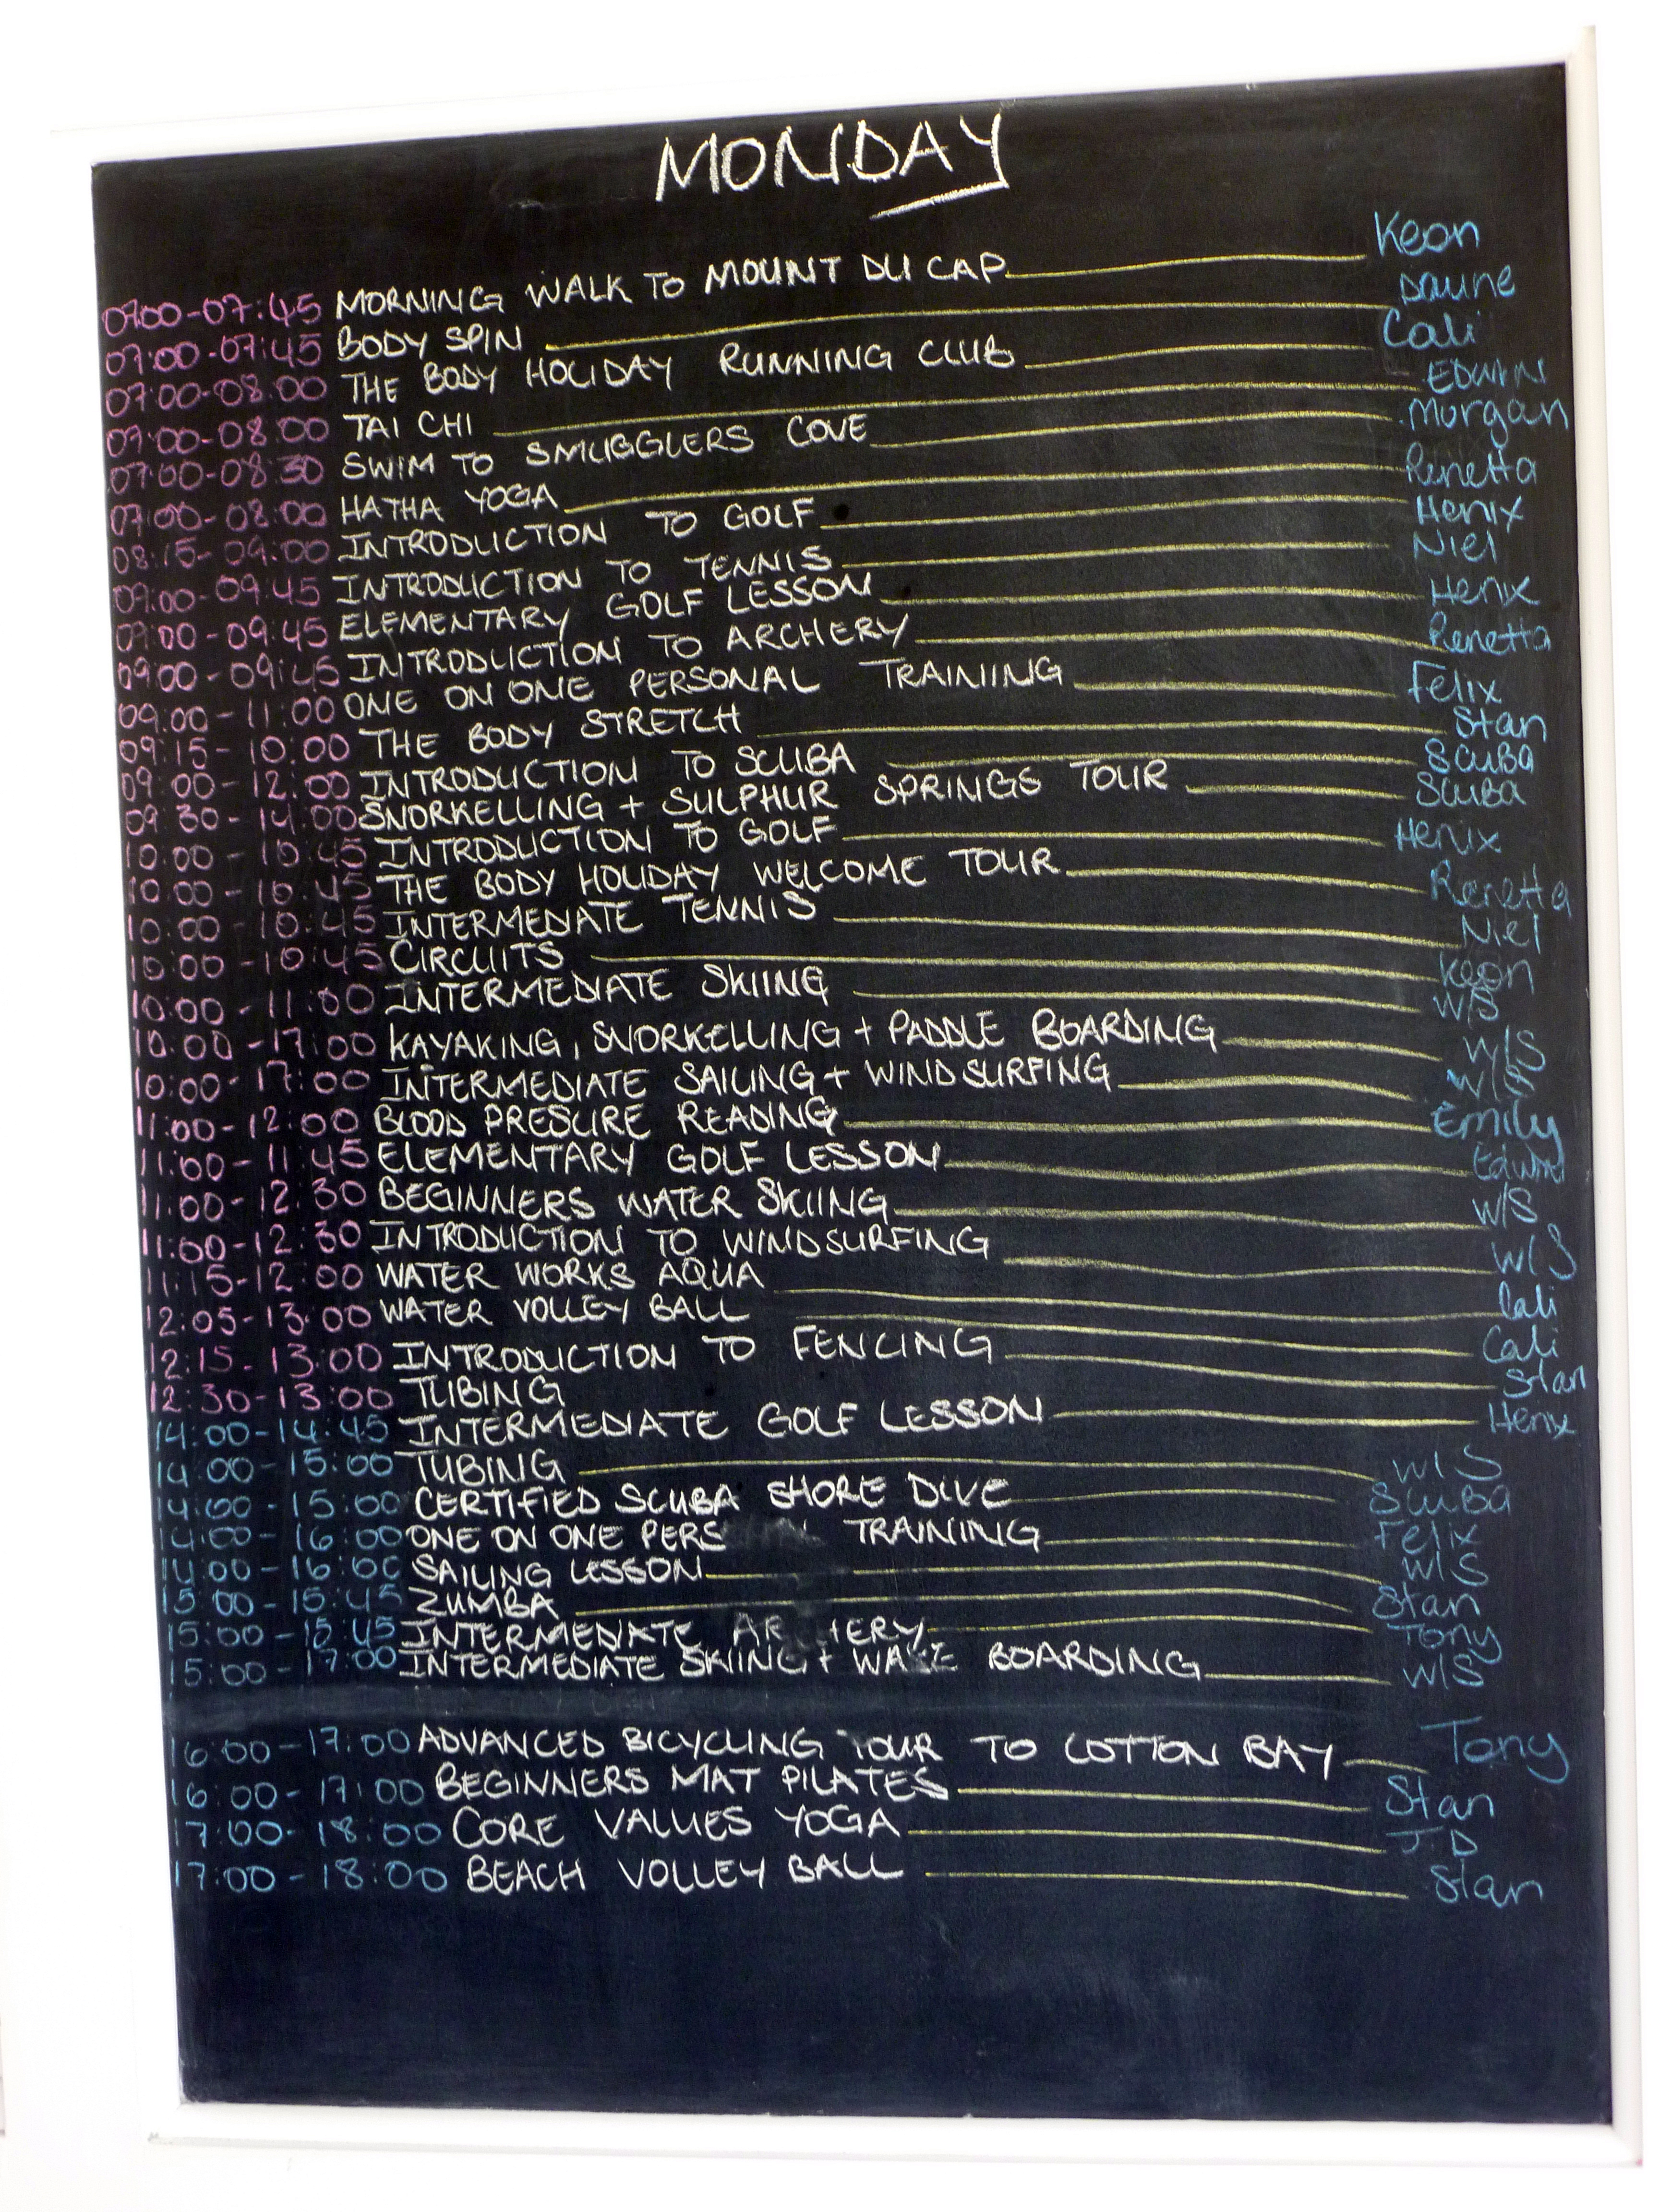 MONDAY
07:00-07:45 MORNING WALK TO MOUNT DU CAP Keon
07:00-07:45 BODY SPIN Daune
07:00-08:00 THE BODY HOLIDAY RUNNING CLUB Cali
07:00-08:00 TAI CHI EDWIN
07:00-08:30 SWIM TO SMUGGLERS COVE Morgan
07:00-08:00 HATHA YOGA Renetta
08:15-09:00 INTRODUCTION TO GOLF Henix
09:00-09:45 INTRODUCTION TO TENNIS Niel
09:00-09:45 ELEMENTARY GOLF LESSON Henix
09:00-09:45 INTRODUCTION TO ARCHERY Renetta
09:00-11:00 ONE ON ONE PERSONAL TRAINING Felix
09:15-10:00 THE BODY STRETCH Stan
09:00-12:00 INTRODUCTION TO SCUBA SCUBA
09:30-14:00 SNORKELLING + SULPHUR SPRINGS TOUR SCUBA
10:00-10:45 INTRODUCTION TO GOLF Henix
10:00-10:45 THE BODY HOLIDAY WELCOME TOUR Renetta
10:00-10:45 INTERMEDIATE TENNIS Niel
10:00-10:45 CIRCUITS Keon
10:00-11:00 INTERMEDIATE SKIING W/S
10:00-17:00 KAYAKING, SNORKELLING + PADDLE BOARDING W/S
10:00-17:00 INTERMEDIATE SAILING + WINDSURFING W/S
11:00-12:00 BLOOD PRESURE READING Emily
11:00-11:45 ELEMENTARY GOLF LESSON Edwin
11:00-12:30 BEGINNERS WATER SKIING W/S
11:00-12:30 INTRODUCTION TO WINDSURFING W/S
11:15-12:00 WATER WORKS AQUA Cali
12:05-13:00 WATER VOLLEY BALL Cali
12:15-13:00 INTRODUCTION TO FENCING Stan
12:30-13:00 TUBING
14:00-14:45 INTERMEDIATE GOLF LESSON Henix
14:00-15:00 TUBING W/S
14:00-15:00 CERTIFIED SCUBA SHORE DIVE SCUBA
14:00-16:00 ONE ON ONE PERS TRAINING Felix
14:00-16:00 SAILING LESSON W/S
15:00-15:45 ZUMBA Stan
15:00-15:45 INTERMEDIATE AR HERY Tony
15:00-17:00 INTERMEDIATE SKIING + WAKE BOARDING W/S
16:00-17:00 ADVANCED BICYCLING TOUR TO COTTON BAY Tony
16:00-17:00 BEGINNERS MAT PILATES Stan
17:00-18:00 CORE VALUES YOGA J.D
17:00-18:00 BEACH VOLLEY BALL Stan